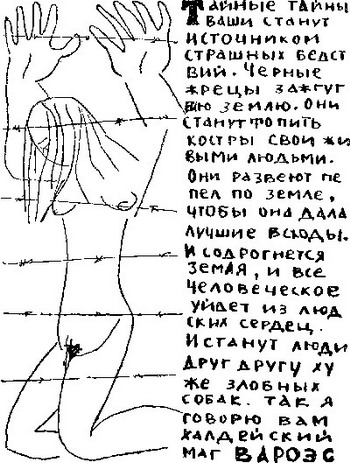 Тайные тайны
ваши станут
источником
страшных бедст
вий. Черные
жрецы зажгут
вю землю. Они
станут топить
костры свои жи
выми людьми.
Они развеют пе
пел по земле,
чтобы она дала
лучшие всходы.
И содрогнется
земля, и все
человеческое
уйдет из люд
ских сердец.
И станут люди
друг другу ху
же злобных
собак. Так я
говорю вам
халдейский
маг ВАРОЭС